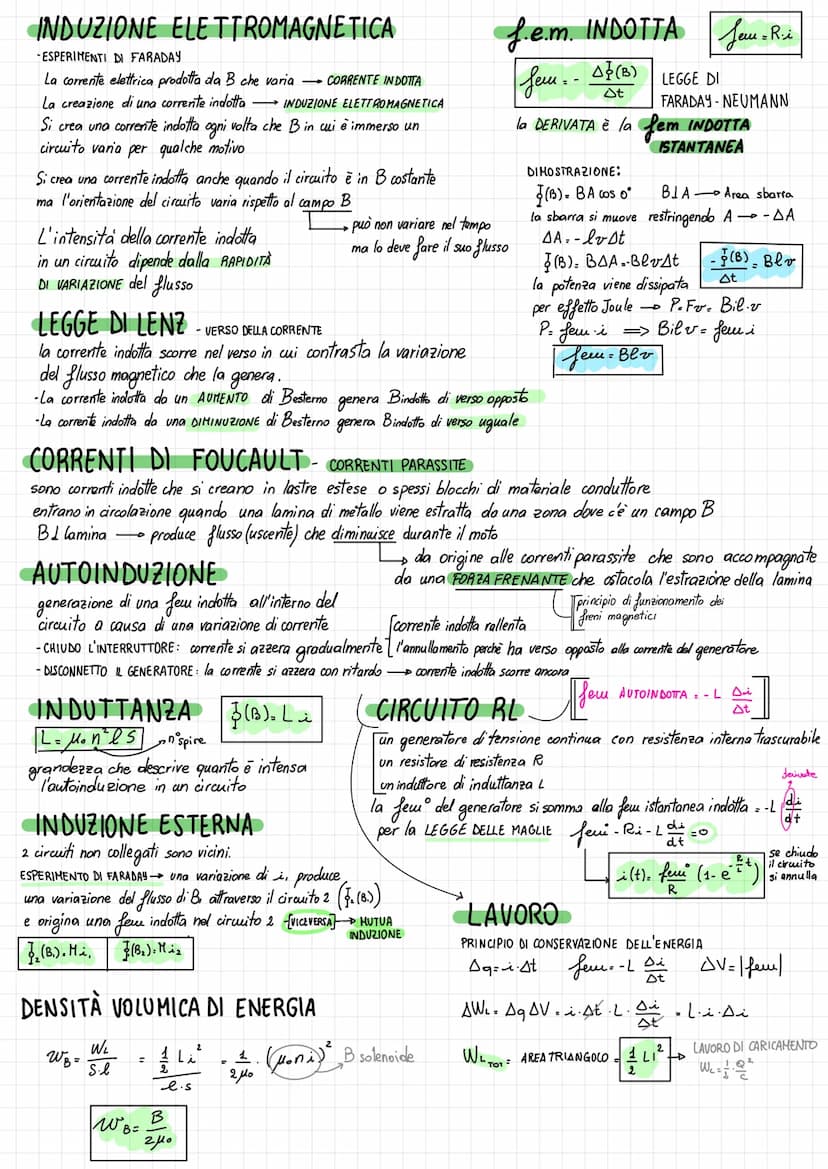 INDUZIONE ELETTROMAGNETICA
-ESPERIMENTI DI FARADAY
La corrente elettrica prodotta da B che varia → CORRENTE INDOTTA
La creazione di una corrente indotta → INDUZIONE ELETTROMAGNETICA
Si crea una corrente indotta ogni volta che B in cui è immerso un
circuito varia per qualche motivo
Si crea una corrente indotta anche quando il circuito è in B costante
ma l'orientazione del circuito varia rispetto al campo B
può non variare nel tempo
ma lo deve fare il suo flusso
L'intensità della corrente indotta
in un circuito dipende dalla RAPIDITÀ
DI VARIAZIONE del flusso
f.e.m. INDOTTA
fem = R·i
fem = - ΔΦ(B)/Δt
LEGGE DI
FARADAY-NEUMANN
la DERIVATA è la fem INDOTTA
ISTANTANEA
DIMOSTRAZIONE:
Φ(B) = BA cos 0° B⊥A → Area sbarra
la sbarra si muove restringendo A → -ΔA
ΔA = -lvΔt
Φ(B) = BΔA = -BlvΔt
-Φ(B)/Δt = Blv
la potenza viene dissipata
per effetto Joule → P = Fv = Bil·v
P = fem·i ⟹ Bilv = fem i
fem = Blv
LEGGE DI LENZ - VERSO DELLA CORRENTE
la corrente indotta scorre nel verso in cui contrasta la variazione
del flusso magnetico che la genera.
-La corrente indotta da un AUMENTO di Besterno genera Bindotto di verso opposto
-La corrente indotta da una DIMINUZIONE di Besterno genera Bindotto di verso uguale
CORRENTI DI FOUCAULT - CORRENTI PARASSITE
sono correnti indotte che si creano in lastre estese o spessi blocchi di materiale conduttore
entrano in circolazione quando una lamina di metallo viene estratta da una zona dove c'è un campo B
B⊥lamina → produce flusso (uscente) che diminuisce durante il moto
da origine alle correnti parassite che sono accompagnate
da una FORZA FRENANTE che ostacola l'estrazione della lamina
principio di funzionamento dei
freni magnetici
AUTOINDUZIONE
generazione di una fem indotta all'interno del
circuito a causa di una variazione di corrente
- CHIUDO L'INTERRUTTORE: corrente si azzera gradualmente
corrente indotta rallenta
l'annullamento perché ha verso opposto alla corrente del generatore
- DISCONNETTO IL GENERATORE: la corrente si azzera con ritardo → corrente indotta scorre ancora
fem AUTOINDOTTA = -L Δi/Δt
INDUTTANZA
Φ(B) = L i
L = μ₀ n² l S
n° spire
grandezza che descrive quanto è intensa
l'autoinduzione in un circuito
CIRCUITO RL
un generatore di tensione continua con resistenza interna trascurabile
un resistore di resistenza R
un induttore di induttanza L
la fem° del generatore si somma alla fem istantanea indotta = -L di/dt
derivate
per la LEGGE DELLE MAGLIE fem - Ri - L di/dt = 0
i(t) = fem°/R (1 - e^(-R/L t))
se chiudo
il circuito
si annulla
INDUZIONE ESTERNA
2 circuiti non collegati sono vicini.
ESPERIMENTO DI FARADAY → una variazione di i₁ produce
una variazione del flusso di B₁ attraverso il circuito 2 (Φ₂(B₁))
e origina una fem indotta nel circuito 2 -[VICEVERSA] → MUTUA
INDUZIONE
Φ₂(B₁) = M i₁ Φ₁(B₂) = M i₂
LAVORO
PRINCIPIO DI CONSERVAZIONE DELL'ENERGIA
Δq = i·Δt fem = -L Δi/Δt ΔV = |fem|
ΔW_L = Δq ΔV = i·Δt·L·Δi/Δt = L·i·Δi
W_L TOT = AREA TRIANGOLO = 1/2 L i² → LAVORO DI CARICAMENTO
DENSITÀ VOLUMICA DI ENERGIA
w_B = W_L/S·l = 1/2 L i²/l·s = 1/2μ₀ · (μ₀ n i)² B solenoide
w_B = B/2μ₀